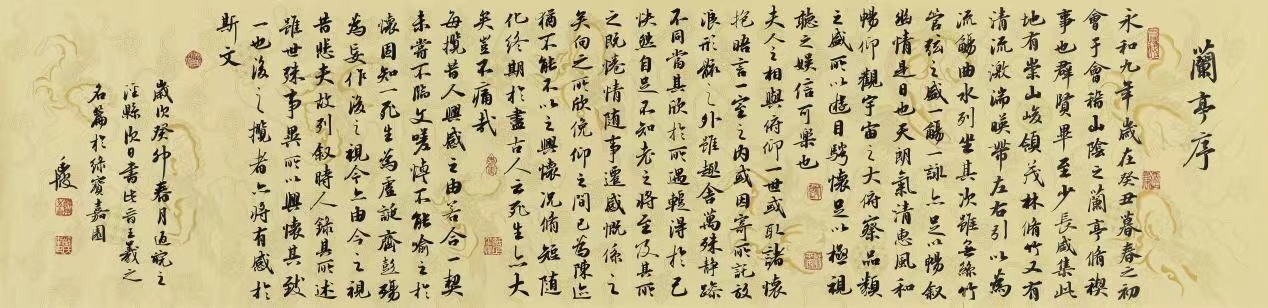 蘭亭序
永和九年歲在癸丑暮春之初
會于會稽山陰之蘭亭脩禊
事也群賢畢至少長咸集此
地有崇山峻領茂林脩竹又有
清流激湍暎帶左右引以為
流觴曲水列坐其次雖無絲竹
管弦之盛一觴一詠亦足以暢叙
幽情是日也天朗氣清惠風和
暢仰觀宇宙之大俯察品類
之盛所以遊目騁懷足以極視
聽之娛信可樂也
夫人之相與俯仰一世或取諸懷
抱晤言一室之內或因寄所託放
浪形骸之外雖趣舍萬殊静躁
不同當其欣於所遇蹔得於己
快然自足不知老之將至及其所
之既惓情隨事遷感慨係之
矣向之所欣俛仰之間已為陳迹
猶不能不以之興懷況脩短隨
化終期於盡古人云死生亦大
矣豈不痛哉
每攬昔人興感之由若合一契
未嘗不臨文嗟悼不能喻之於
懷固知一死生為虛誕齊彭殤
為妄作後之視今亦由今之視
昔悲夫故列叙時人錄其所述
雖世殊事異所以興懷其致
一也後之攬者亦將有感於
斯文
歲次癸卯春月過皖之
涇縣次日書此晉王羲之
名篇於弥寶嘉園